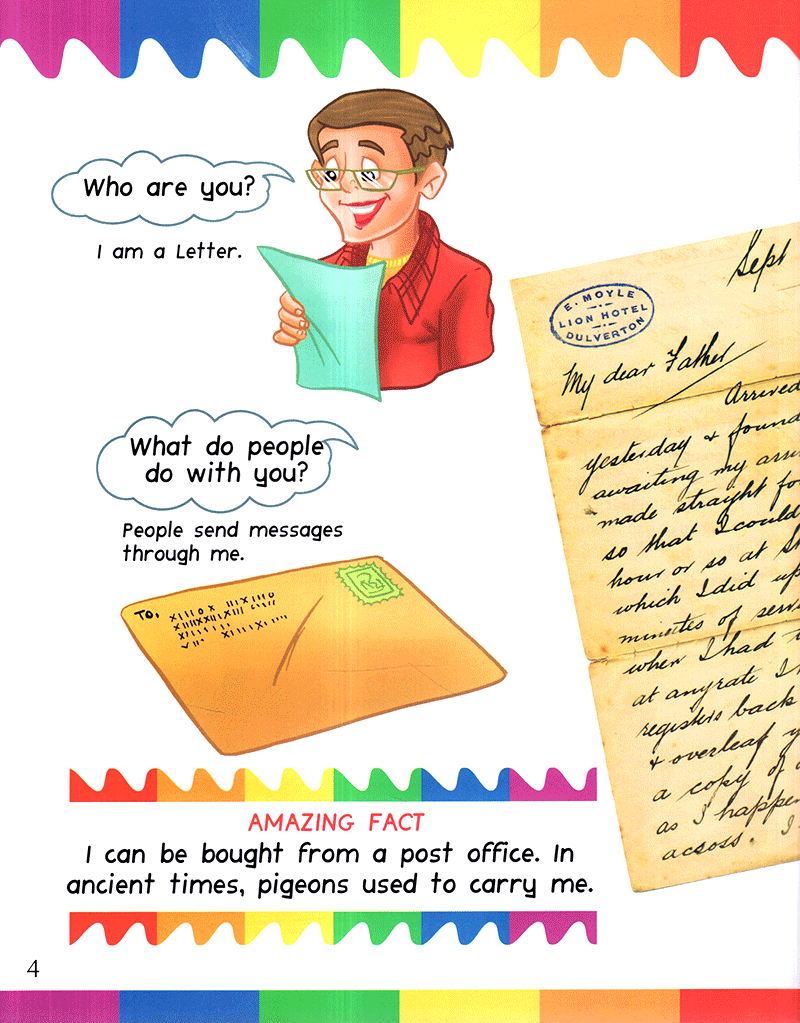 Who are you?
I am a Letter.
What do people
do with you?
People send messages
through me.
TO,
Sept
E. MOYLE
LION HOTEL
DULVERTON
My dear Father
Arrived
yesterday & found
awaiting my
made straight
so that I could
hour or so at
which I did
minutes of
when I had
at anyrate I
registers back
& overleaf
a copy of
as I
across. I
AMAZING FACT
I can be bought from a post office. In
ancient times, pigeons used to carry me.
4